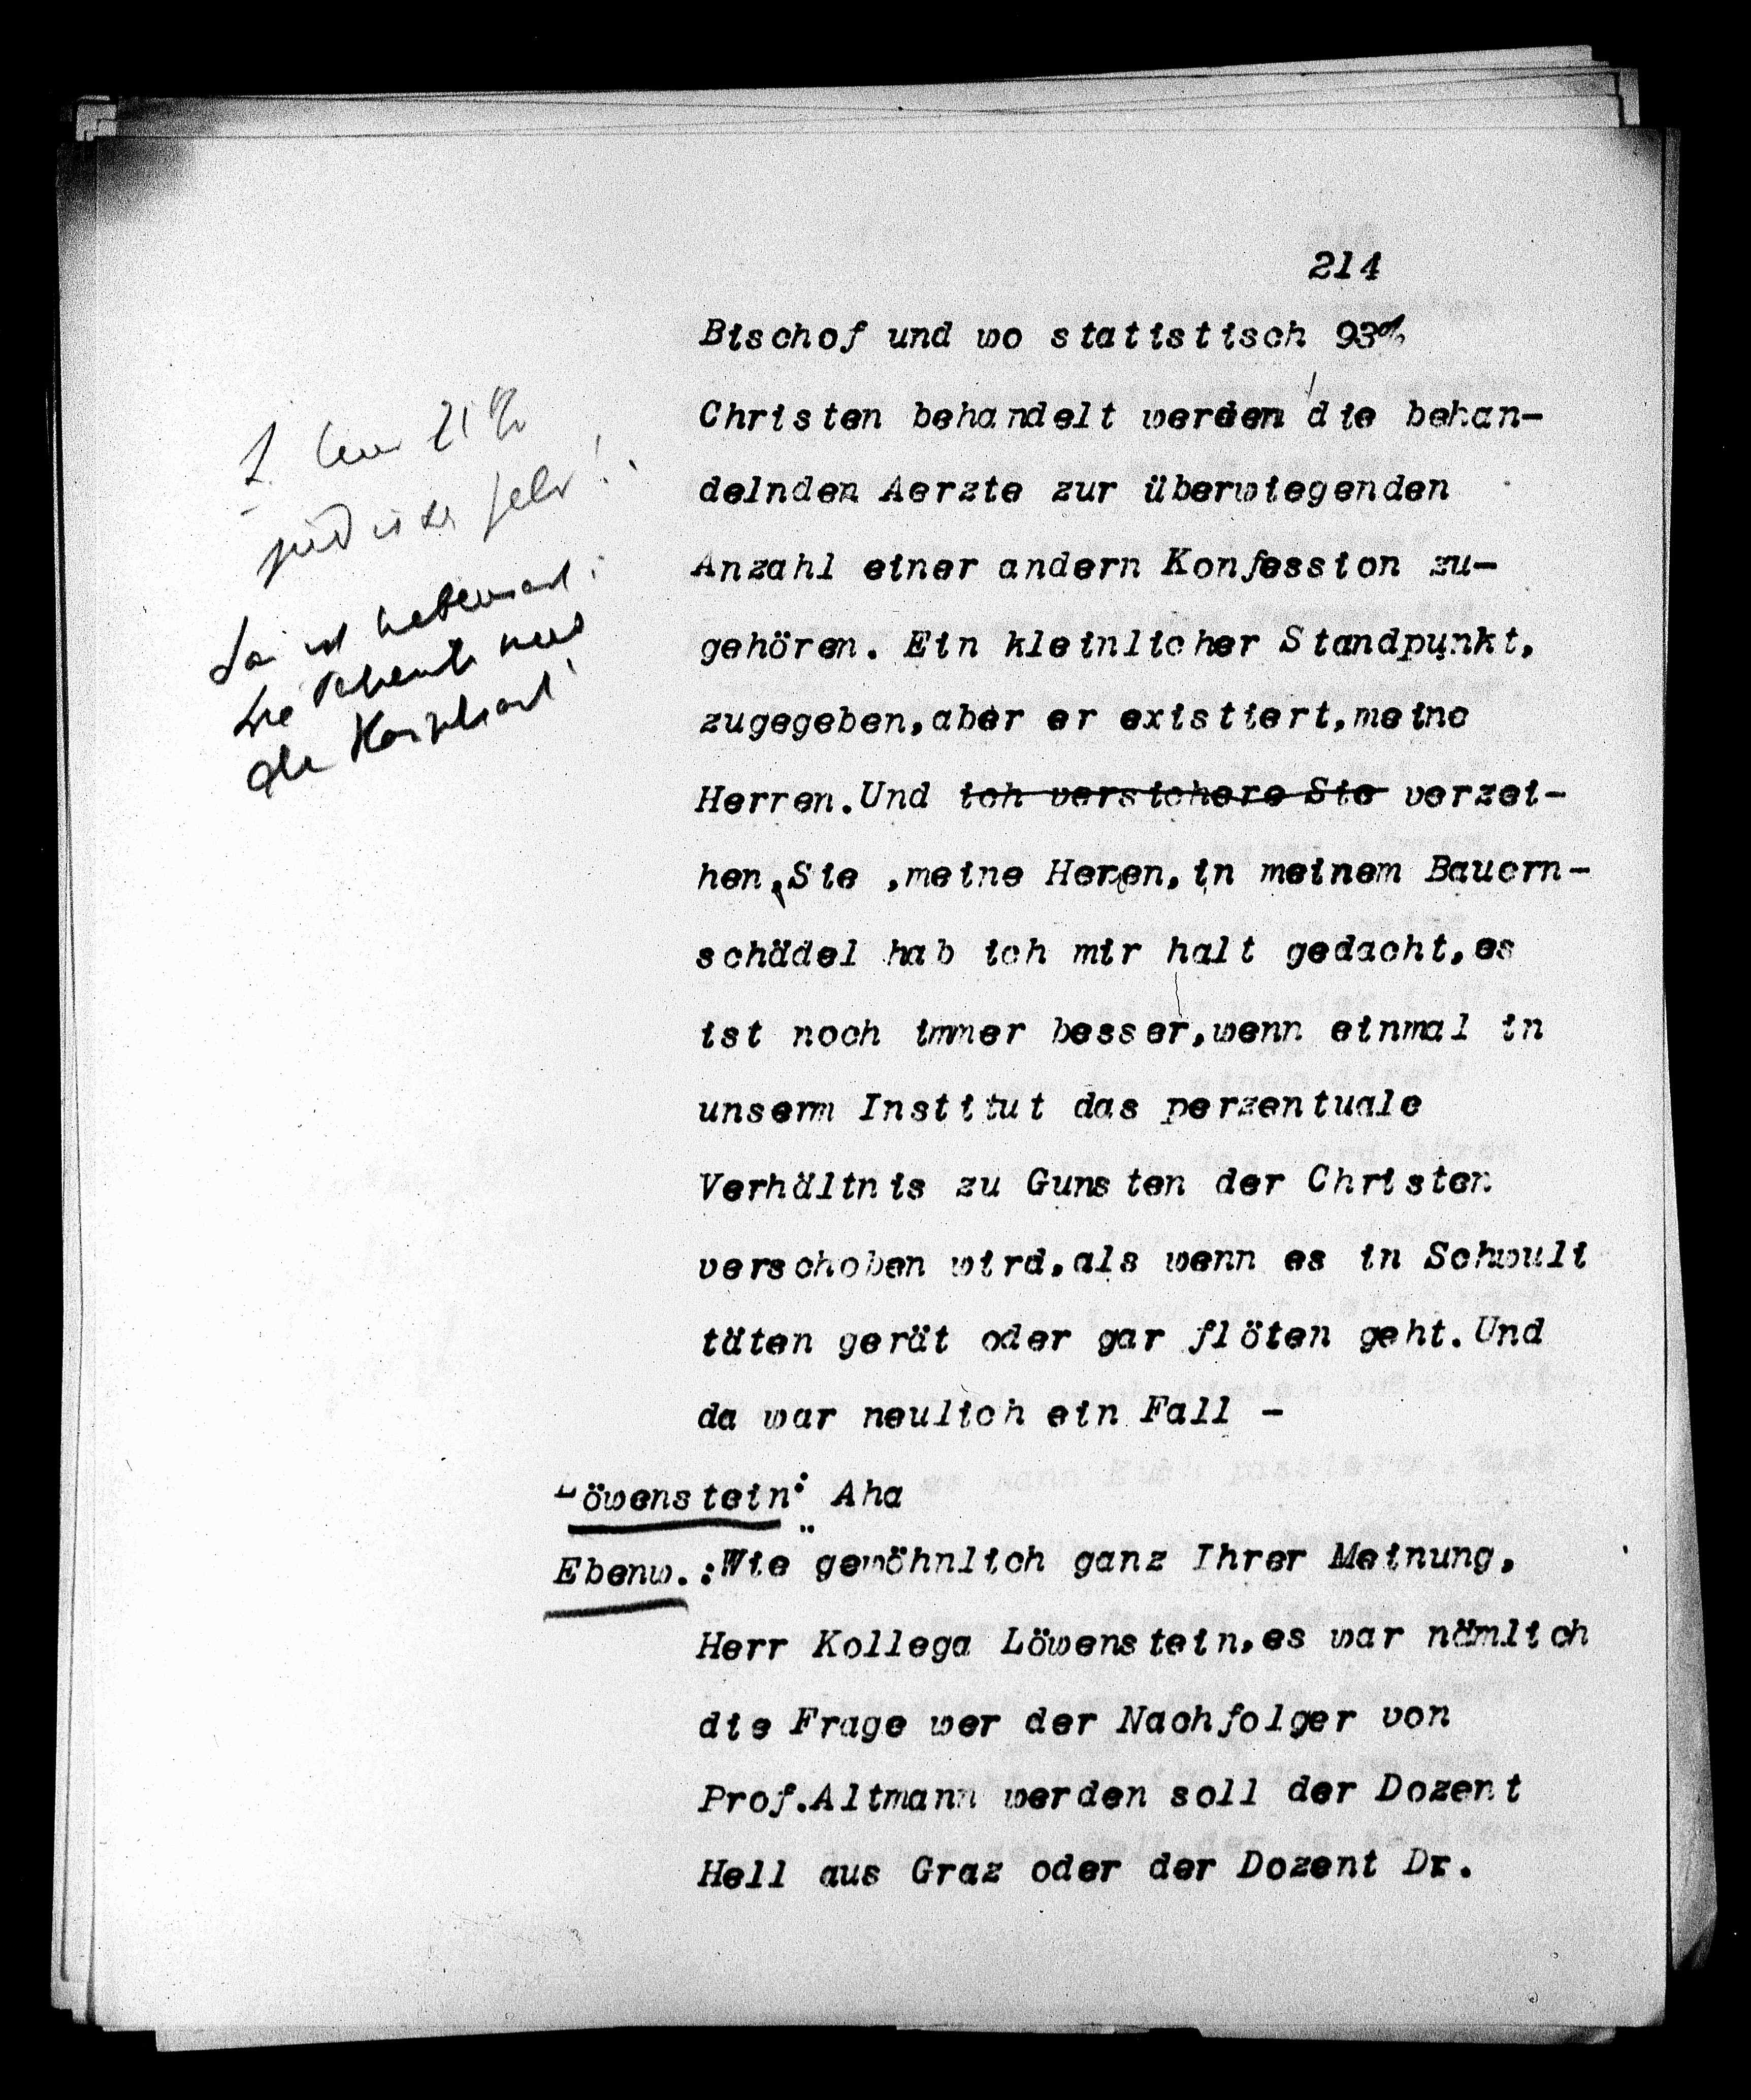 214
Bischof und wo statistisch 93%
Christen behandelt werden die behan-
delnden Aerzte zur überwiegenden
Anzahl einer andern Konfession zu-
gehören. Ein kleinlicher Standpunkt,
zugegeben,aber er existiert,meine
Herren.Und ich versichere Sie verzei-
hen,Sie ,meine Heren,in meinem Bauern-
schädel hab ich mir halt gedacht,es
ist noch immer besser,wenn einmal in
unserm Institut das perzentuale
Verhältnis zu Gunsten der Christen
verschoben wird,als wenn es in Schwuli
täten gerät oder gar flöten geht.Und
da war neulich ein Fall -
Löwenstein: Aha
Ebenw.:Wie gewöhnlich ganz Ihrer Meinung,
Herr Kollega Löwenstein,es war nämlich
die Frage wer der Nachfolger von
Prof.Altmann werden soll der Dozent
Hell aus Graz oder der Dozent Dr.